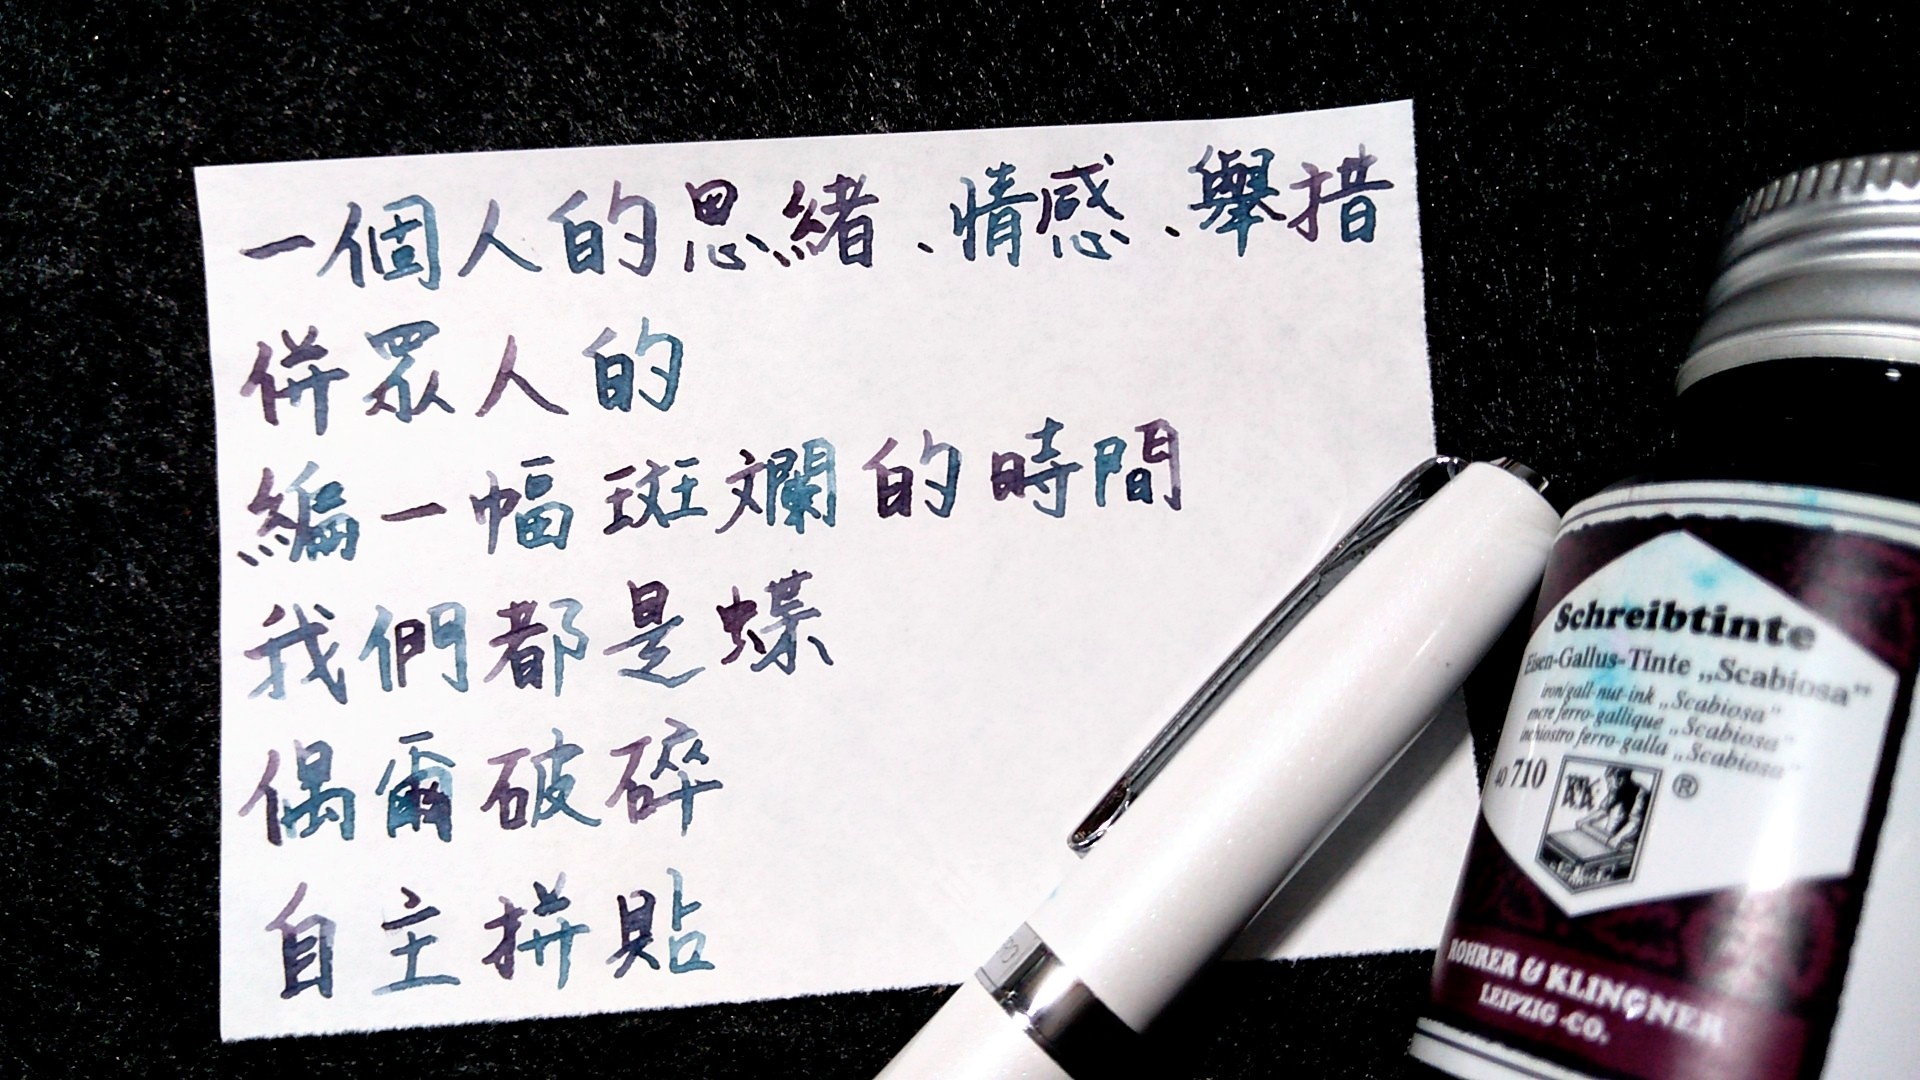 一個人的思緒、情感、舉措
併眾人的
編一幅斑斕的時間
我們都是蝶
偶爾破碎
自主拼貼
Schreibtinte
Eisen-Gallus-Tinte „Scabiosa“
iron/gall-nut-ink „Scabiosa“
encre ferro-gallique „Scabiosa“
inchiostro ferro-galla „Scabiosa“
40 710
®
ROHRER & KLINGNER
LEIPZIG -CO.